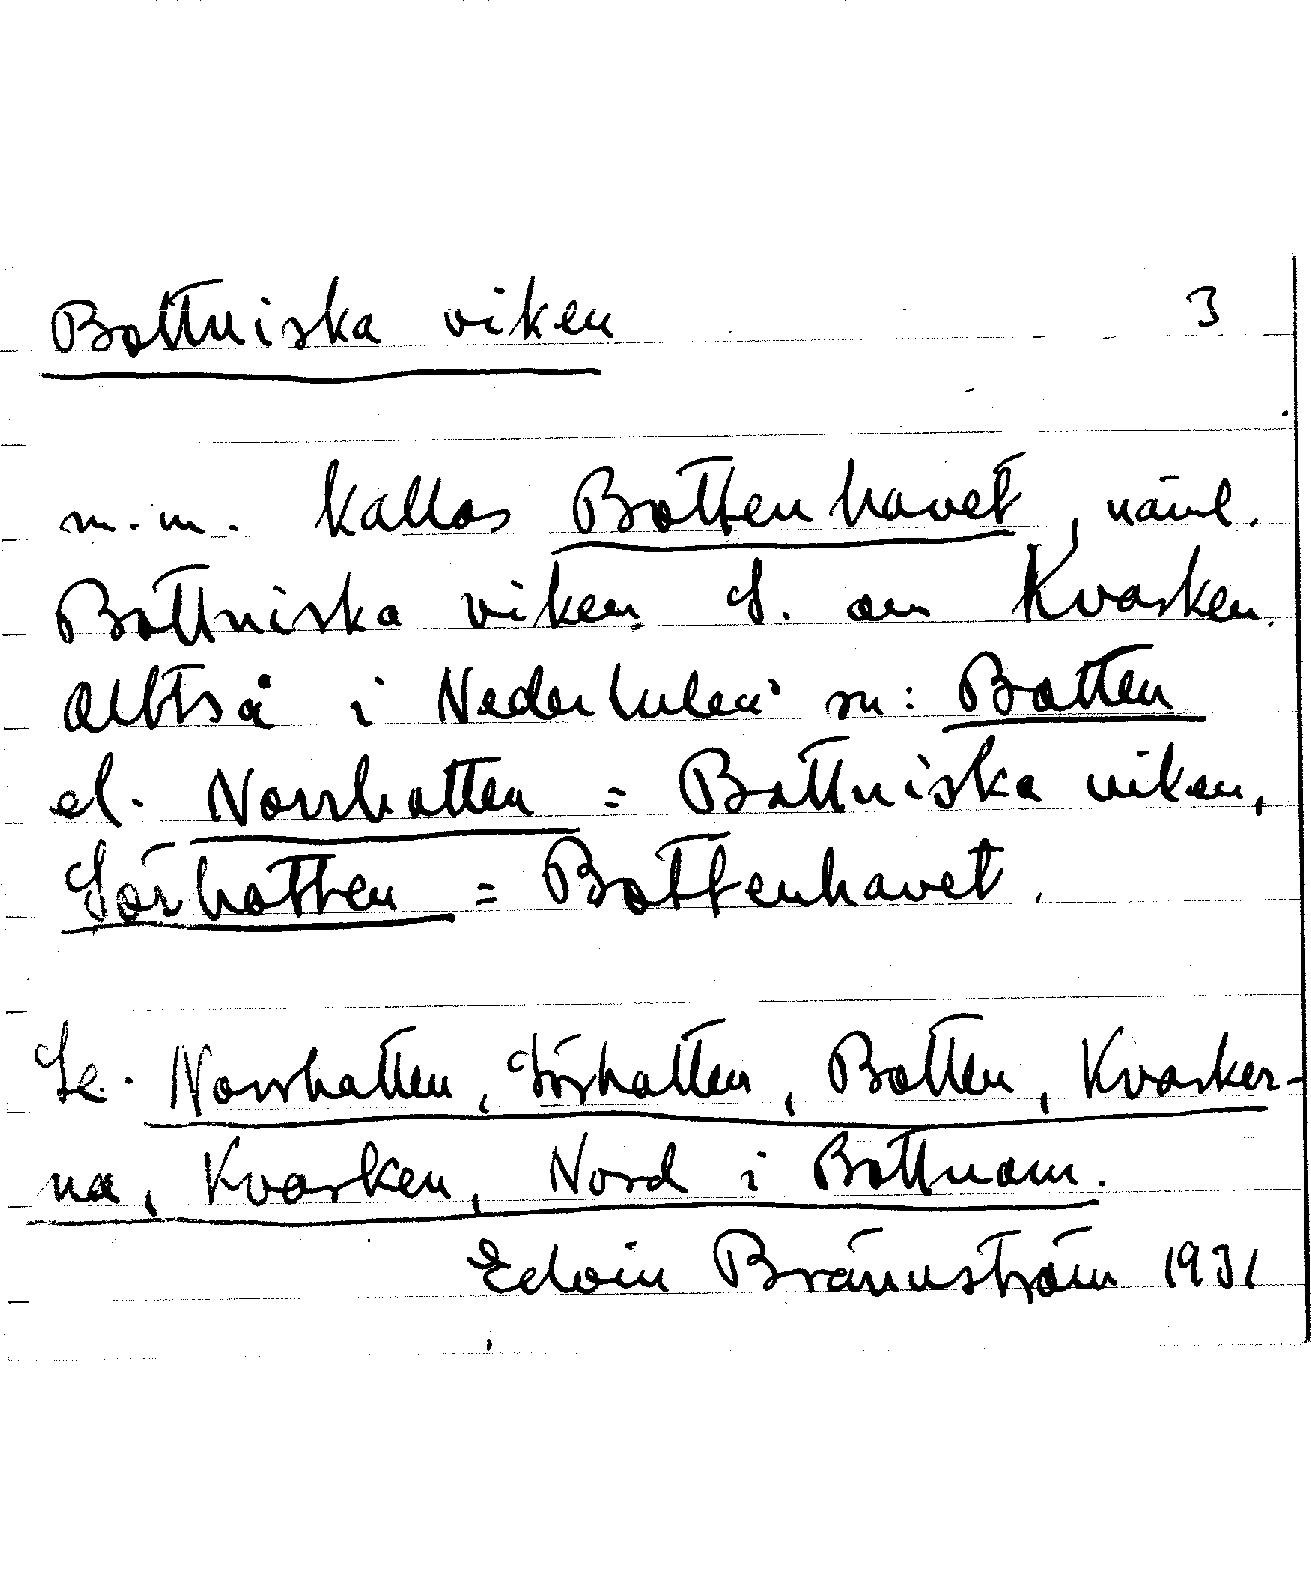 Bottniska viken 3
m.m. kallas Bottenhavet, näml.
Bottniska viken S. om Kvarken.
Alltså i Nederluleå sn: Botten
el. Norrbotten = Bottniska viken,
Sörbotten = Bottenhavet.
Se. Norrbotten, Sörbotten, Botten, Kvarker-
na, Kvarken, Nord i Bottnom.
Edvin Brännström 1931